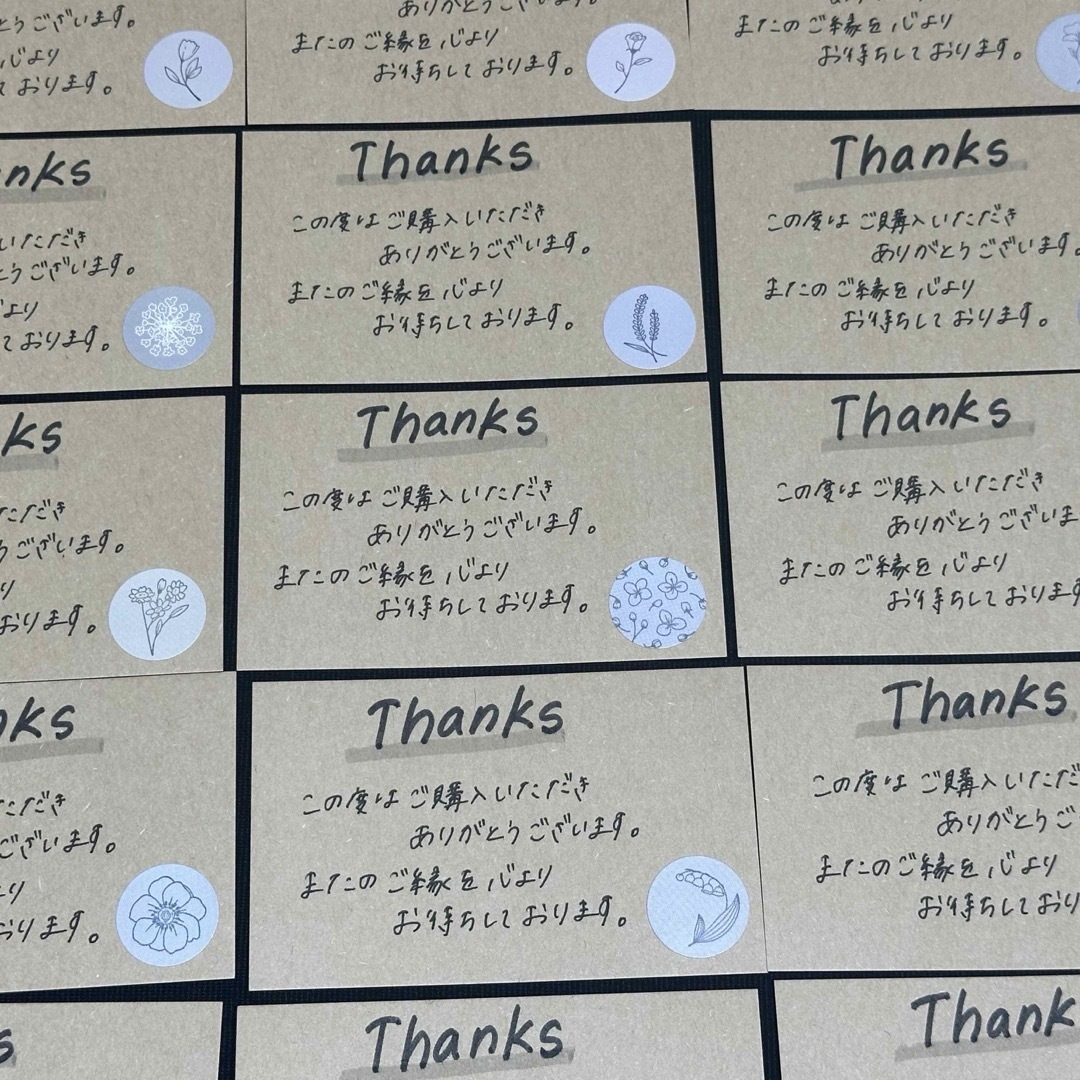 とうございます。
心より
ております。
ありがとうございます。
またのご縁を心より
お待ちしております。
またのご縁を心より
お待ちしております。
nks
いただき
とうございます。
より
ております。
Thanks
この度はご購入いただき
ありがとうございます。
またのご縁を心より
お待ちしております。
Thanks
この度はご購入いただき
ありがとうございます。
またのご縁を心より
お待ちしております。
ks
ただき
うございます。
り
おります。
Thanks
この度はご購入いただき
ありがとうございます。
またのご縁を心より
お待ちしております。
Thanks
この度はご購入いただき
ありがとうございま
またのご縁を心より
お待ちしております
nks
ただき
ございます。
より
おります。
Thanks
この度はご購入いただき
ありがとうございます。
またのご縁を心より
お待ちしております。
Thanks
この度はご購入いただ
ありがとうご
またのご縁を心より
お待ちしており
s
Thanks
Thank